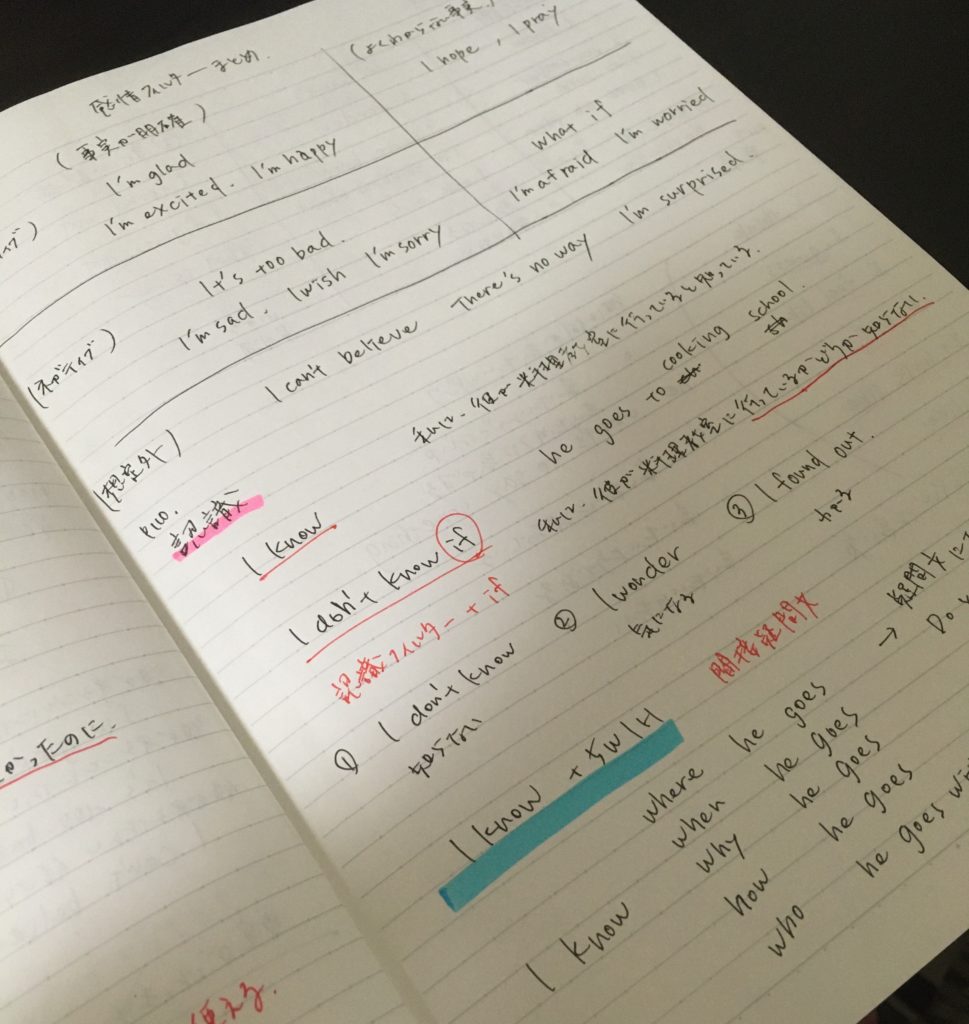 感情フィルターまとめ
(事実が明確)
(よくわからない事実)
I'm glad
I'm excited. I'm happy
I hope, I pray
It's too bad.
I'm sad. I wish I'm sorry
what if
I'm afraid I'm worried
(ネガティブ)
I can't believe There's no way I'm surprised.
(想定外)
P110.
認識
I know
私は、彼が料理教室に行っていると知っている.
he goes to cooking school.
I don't know if
私は、彼が料理教室に行っているかどうか知らない.
認識フィルター + if
① I don't know
知らない
② I wonder
気になる
③ I found out.
わかる
I know + 5W1H
間接疑問文
→ 疑問文に
Do
I know
where he goes
when he goes
why he goes
how he goes
who he goes
かったのに.
使える.